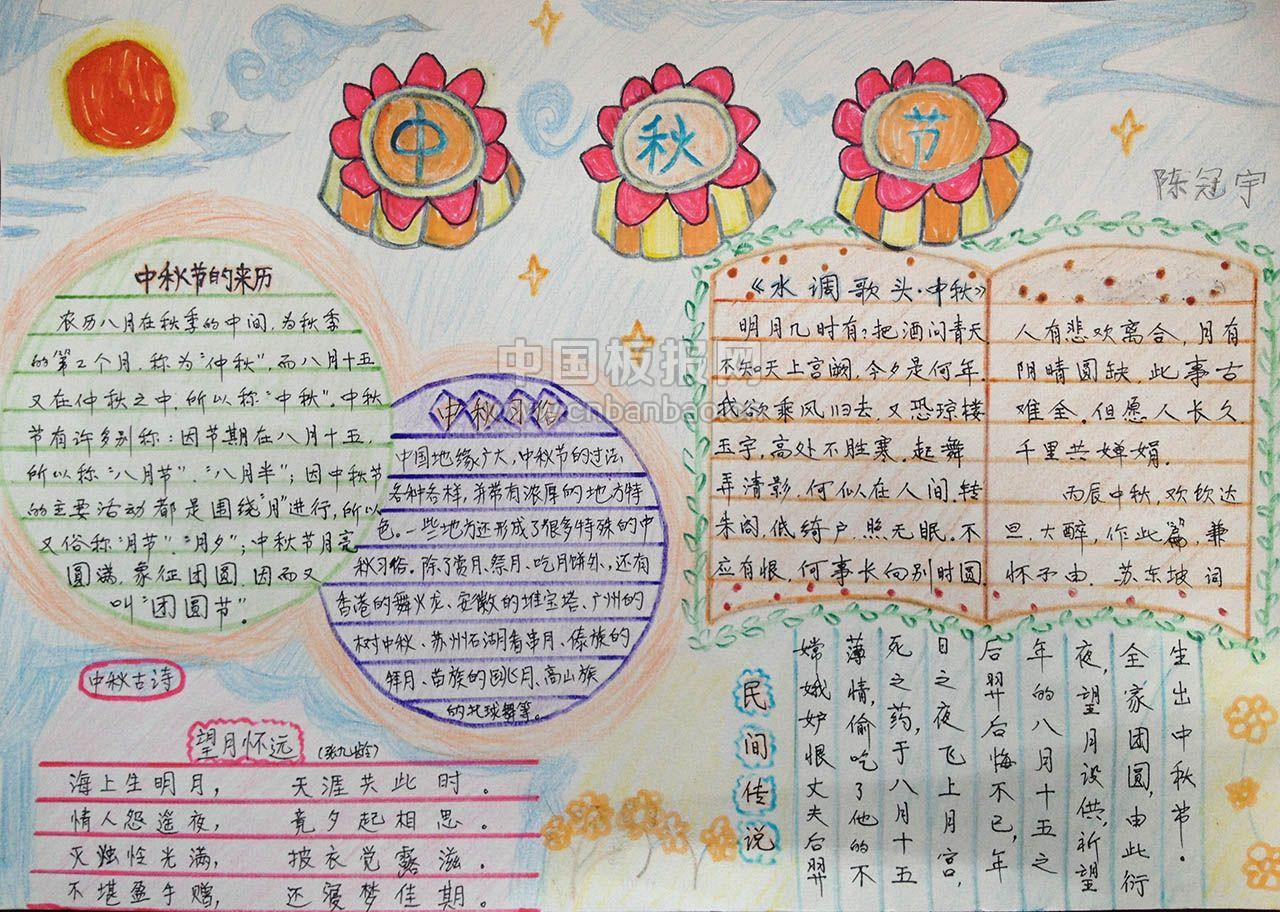 中秋节
陈冠宇
中秋节的来历
农历八月在秋季的中间,为秋季
的第二个月,称为"仲秋",而八月十五
又在仲秋之中,所以称"中秋"。中秋
节有许多别称:因节期在八月十五,
所以称"八月节"、"八月半";因中秋节
的主要活动都是围绕"月"进行,所以
又俗称"月节"、"月夕";中秋节月亮
圆满,象征团圆,因而又
叫"团圆节"。
中秋习俗
中国地缘广大,中秋节的过法
各种各样,并带有浓厚的地方特
色。一些地方还形成了很多特殊的中
秋习俗。除了赏月、祭月、吃月饼外,还有
香港的舞火龙、安徽的堆宝塔、广州的
树中秋、苏州石湖看串月、傣族的
拜月、苗族的跳月、高山族
的托球舞等。
《水调歌头·中秋》
明月几时有?把酒问青天
不知天上宫阙,今夕是何年.
我欲乘风归去,又恐琼楼
玉宇,高处不胜寒.起舞
弄清影,何似在人间,转
朱阁,低绮户,照无眠.不
应有恨,何事长向别时圆
人有悲欢离合,月有
阴晴圆缺,此事古
难全.但愿人长久
千里共婵娟.
丙辰中秋,欢饮达
旦,大醉,作此篇,兼
怀子由. 苏东坡 词
中秋古诗
望月怀远 (张九龄)
海上生明月, 天涯共此时。
情人怨遥夜, 竟夕起相思。
灭烛怜光满, 披衣觉露滋。
不堪盈手赠, 还寝梦佳期。
民间传说
嫦娥妒恨丈夫后羿
薄情,偷吃了他的不
死之药,于八月十五
日之夜飞上月宫,
后羿后悔不已,年
年的八月十五之
夜,望月设供,祈望
全家团圆,由此衍
生出中秋节。
中国板报网
www.cnbanbao.